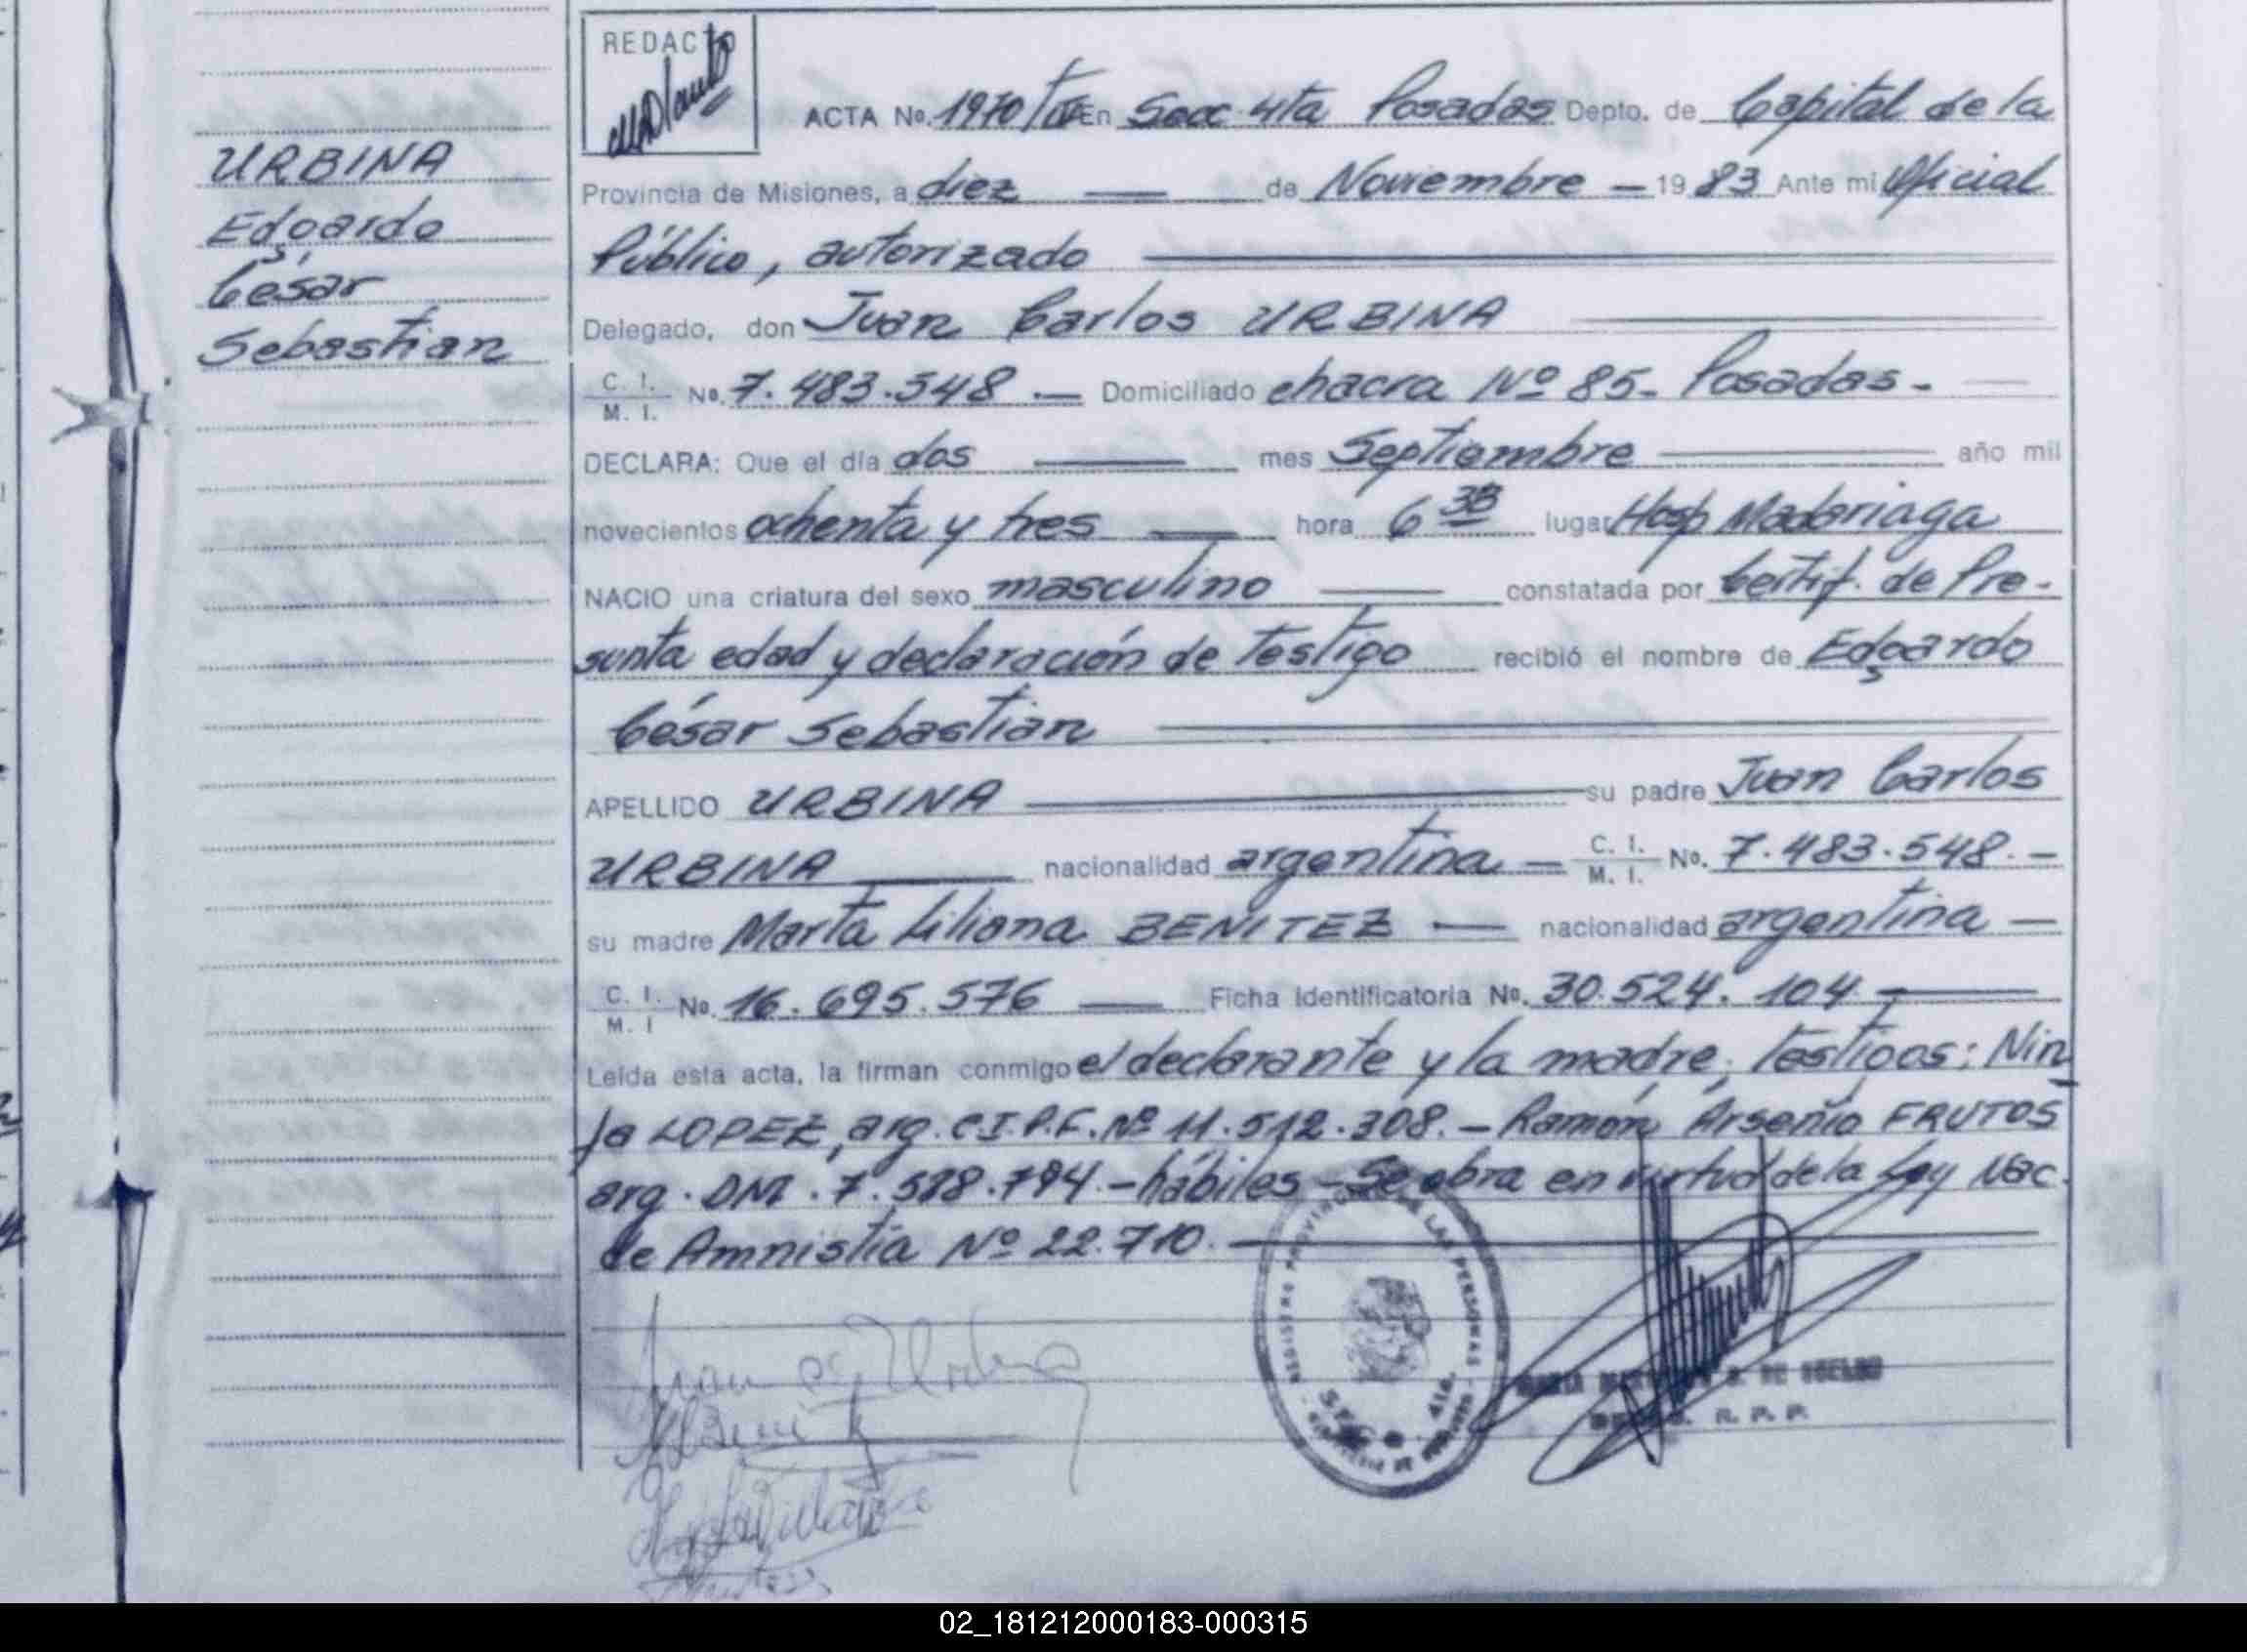 URBINA
Edgardo
César
Sebastian
REDACTO
ACTA No. 1970/ En Secc 4ta Posadas Depto. de Capital de la
Provincia de Misiones, a diez de Noviembre 19 83 Ante mi Oficial
Público, autorizado
Delegado, don Juan Carlos URBINA
C. I. / M. I. No. 7.483.548.- Domiciliado chacra Nº 85- Posadas-
DECLARA: Que el día dos mes Septiembre año mil
novecientos ochenta y tres hora 6 30 lugar Hosp Madariaga
NACIO una criatura del sexo masculino constatada por Certif. de Pre-
sunta edad y declaración de testigo recibió el nombre de Edgardo
César Sebastian
APELLIDO URBINA su padre Juan Carlos
URBINA nacionalidad argentina C. I. / M. I. No. 7.483.548.-
su madre Marta Liliana BENITEZ nacionalidad argentina
C. I. / M. I No. 16.695.576 Ficha Identificatoria No. 30.524.104
Leída esta acta, la firman conmigo el declarante y la madre, testigos: Nin
fa LOPEZ, arg. C.I.P.F. Nº 11.512.308.- Ramón Arsenio FRUTOS
arg. DM. 7.518.794.- hábiles- Se obra en virtud de la Ley Nac.
de Amnistia Nº 22.710.
REGISTRO PROVINCIAL DE LAS PERSONAS
4ta.
R. P. P.
02_181212000183-000315